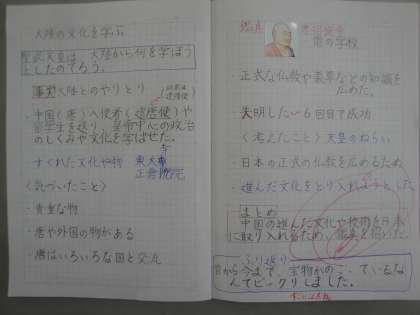 大陸の文化を学ぶ
聖武天皇は、大陸から何を学ぼう
としたのだろう。
事実 大陸とのやりとり
遣唐使
・中国(唐)へ使者(遣唐使)や
留学生を送り、皇帝中心の政治
のしくみや文化を学ばせた。
・すぐれた文化や物 東大寺
正倉院
〈気づいたこと〉
・貴重な物
・唐や外国の物がある
・唐はいろいろな国と交流
鑑真
僧の学校
・正式な仏教や薬草などの知識を
広めた。
・失明したい6回目で成功
〈考えたこと〉天皇のねらい
・日本の正式の仏教を広めるため
・進んだ文化をとり入れようとした
まとめ
中国の進んだ文化や技術を日本
に取り入れるため、鑑真を招いた。
ふり返り
昔から今まで、宝物がのこっているな
んてビックリしました。